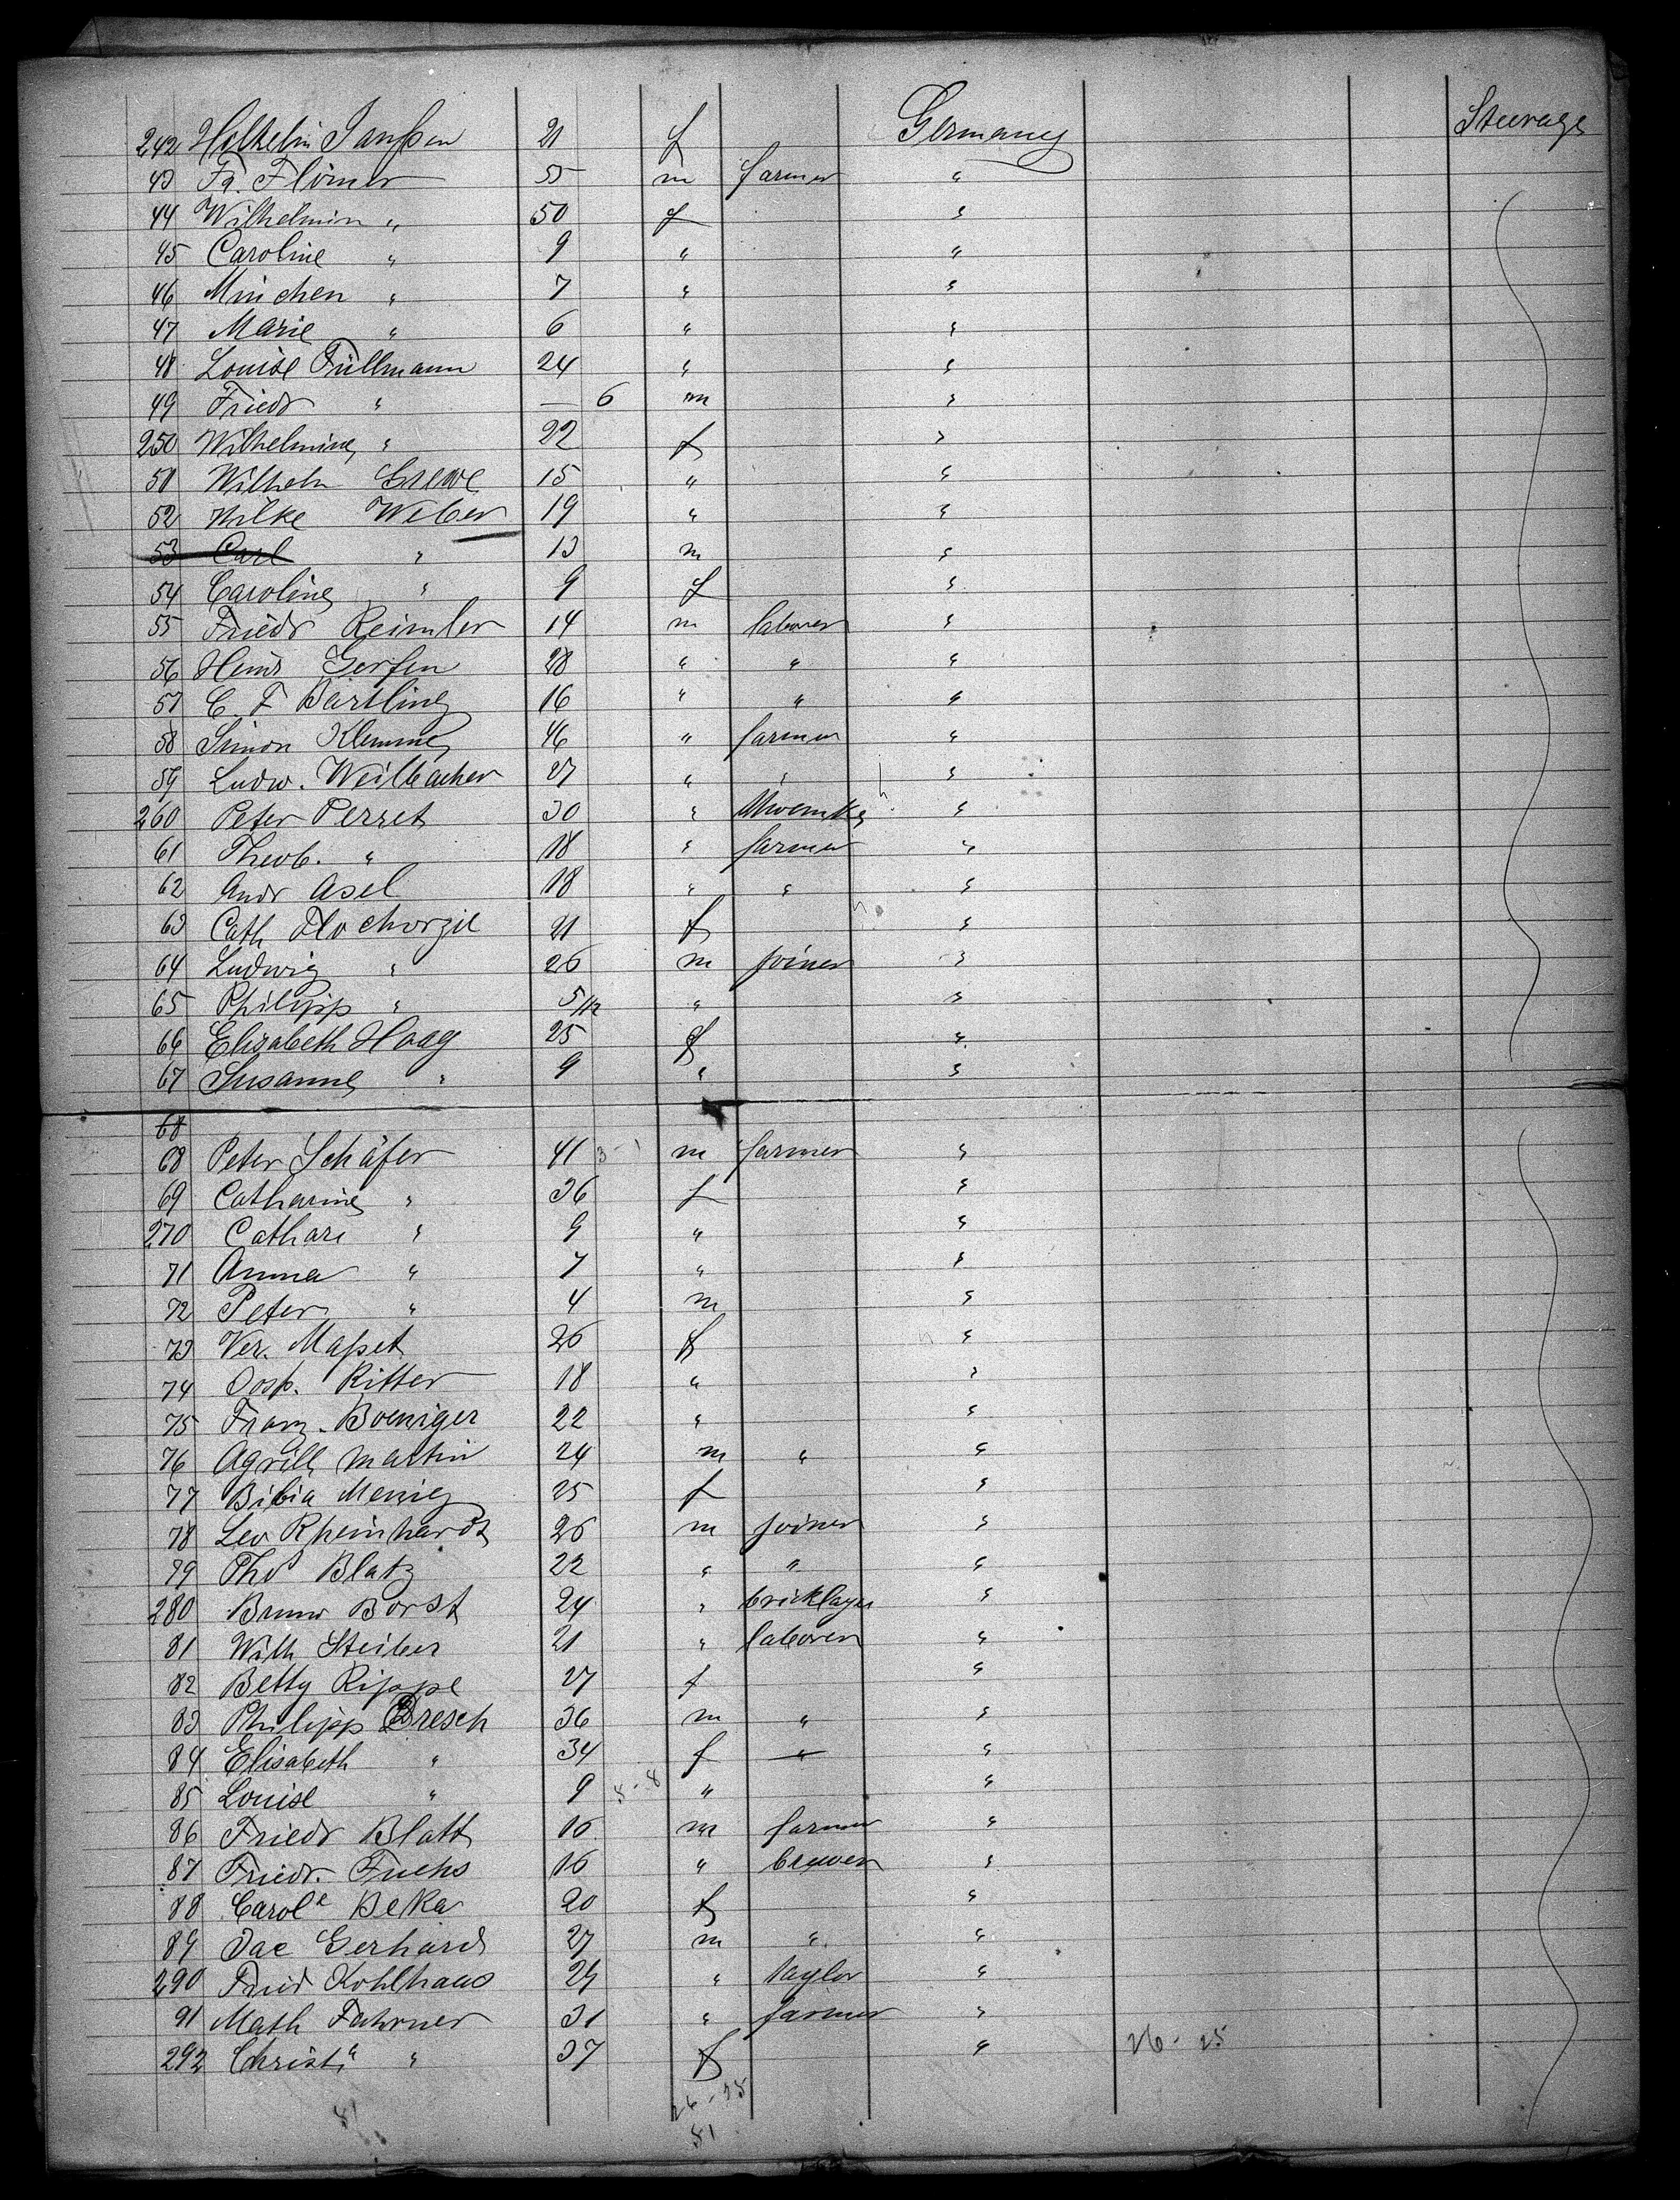 242 Helhelm Janssen 21 f Germany Steerage
43 Fr. Flömer 55 m farmer "
44 Wilhelmin " 50 f "
45 Caroline " 9 " "
46 Minchen " 7 " "
47 Marie " 6 " "
48 Louise Füllmann 24 " "
49 Friedr " — 6 m "
250 Wilhelmine " 22 f "
51 Wilhelm Grewe 15 " "
52 Hilke Weber 19 " "
53 Carl " 13 m "
54 Caroline " 9 f "
55 Friedr Reimler 14 m laborer "
56 Heinr Gerfen 28 " " "
57 C F Bartling 16 " " "
58 Simon Klemme 46 " farmer "
59 Ludw. Weilbacher 27 " " "
260 Peter Perret 30 " "
61 Theob. " 18 " farmer "
62 Andr Asel 18 " " "
63 Cath Flochorzil 21 f "
64 Ludwig " 26 m joiner "
65 Philipp " 5/12 " "
66 Elisabeth Haag 25 f "
67 Susanne " 9 " "
68
68 Peter Schäfer 41 3-1 m farmer "
69 Catharine " 36 f "
270 Cathari " 9 " "
71 Anna " 7 " "
72 Peter " 4 m "
73 Ver. Masset 26 f "
74 Josp. Ritter 18 " "
75 Franz. Boeniger 22 " "
76 Agrill Martin 24 m " "
77 Bibia Menig 25 f "
78 Leo Rheinhardt 26 m joiner "
79 Thd Blatz 22 " " "
280 Bruno Borst 24 " bricklayer "
81 Wilh Steiber 21 " laborer "
82 Betty Rippe 27 f "
83 Philipp Dresch 36 m " "
84 Elisabeth " 34 f " "
85 Louise " 9 8-8 " "
86 Friedr Blatt 16 m farmer "
87 Friedr. Fuchs 16 " brewer "
88 Carole Beka 20 f "
89 Jac Gerhard 27 m " "
290 Fried Kohlhaas 24 " taylor "
91 Math Fahrner 31 " farmer "
292 Christi " 37 f " 26-25
81 26-25
51